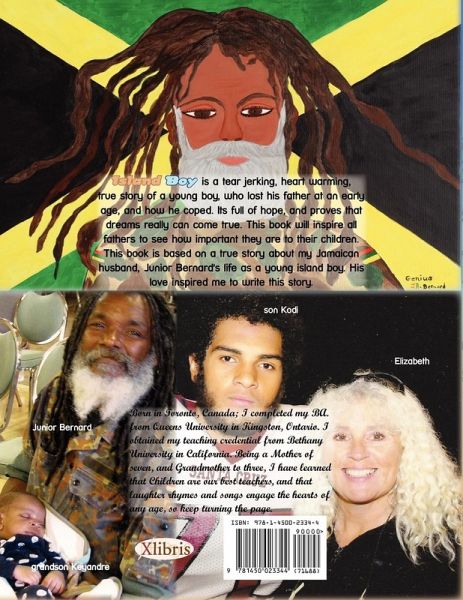 Island Boy is a tear jerking, heart warming,
true story of a young boy, who lost his father at an early
age, and how he coped. Its full of hope, and proves that
dreams really can come true. This book will inspire all
fathers to see how important they are to their children.
This book is based on a true story about my Jamaican
husband, Junior Bernard's life as a young island boy. His
love inspired me to write this story.
Genius
J.R. Bernard
son Kodi
Elizabeth
Junior Bernard
Born in Toronto, Canada; I completed my BA.
from Queens University in Kingston, Ontario. I
obtained my teaching credential from Bethany
University in California. Being a Mother of
seven, and Grandmother to three, I have learned
that Children are our best teachers, and that
laughter rhymes and songs engage the hearts of
any age, so keep turning the page.
SANTA CRUZ
grandson Keyandre
Xlibris
ISBN: 978-1-4500-2334-4
90000
9 781450 023344
(71688)